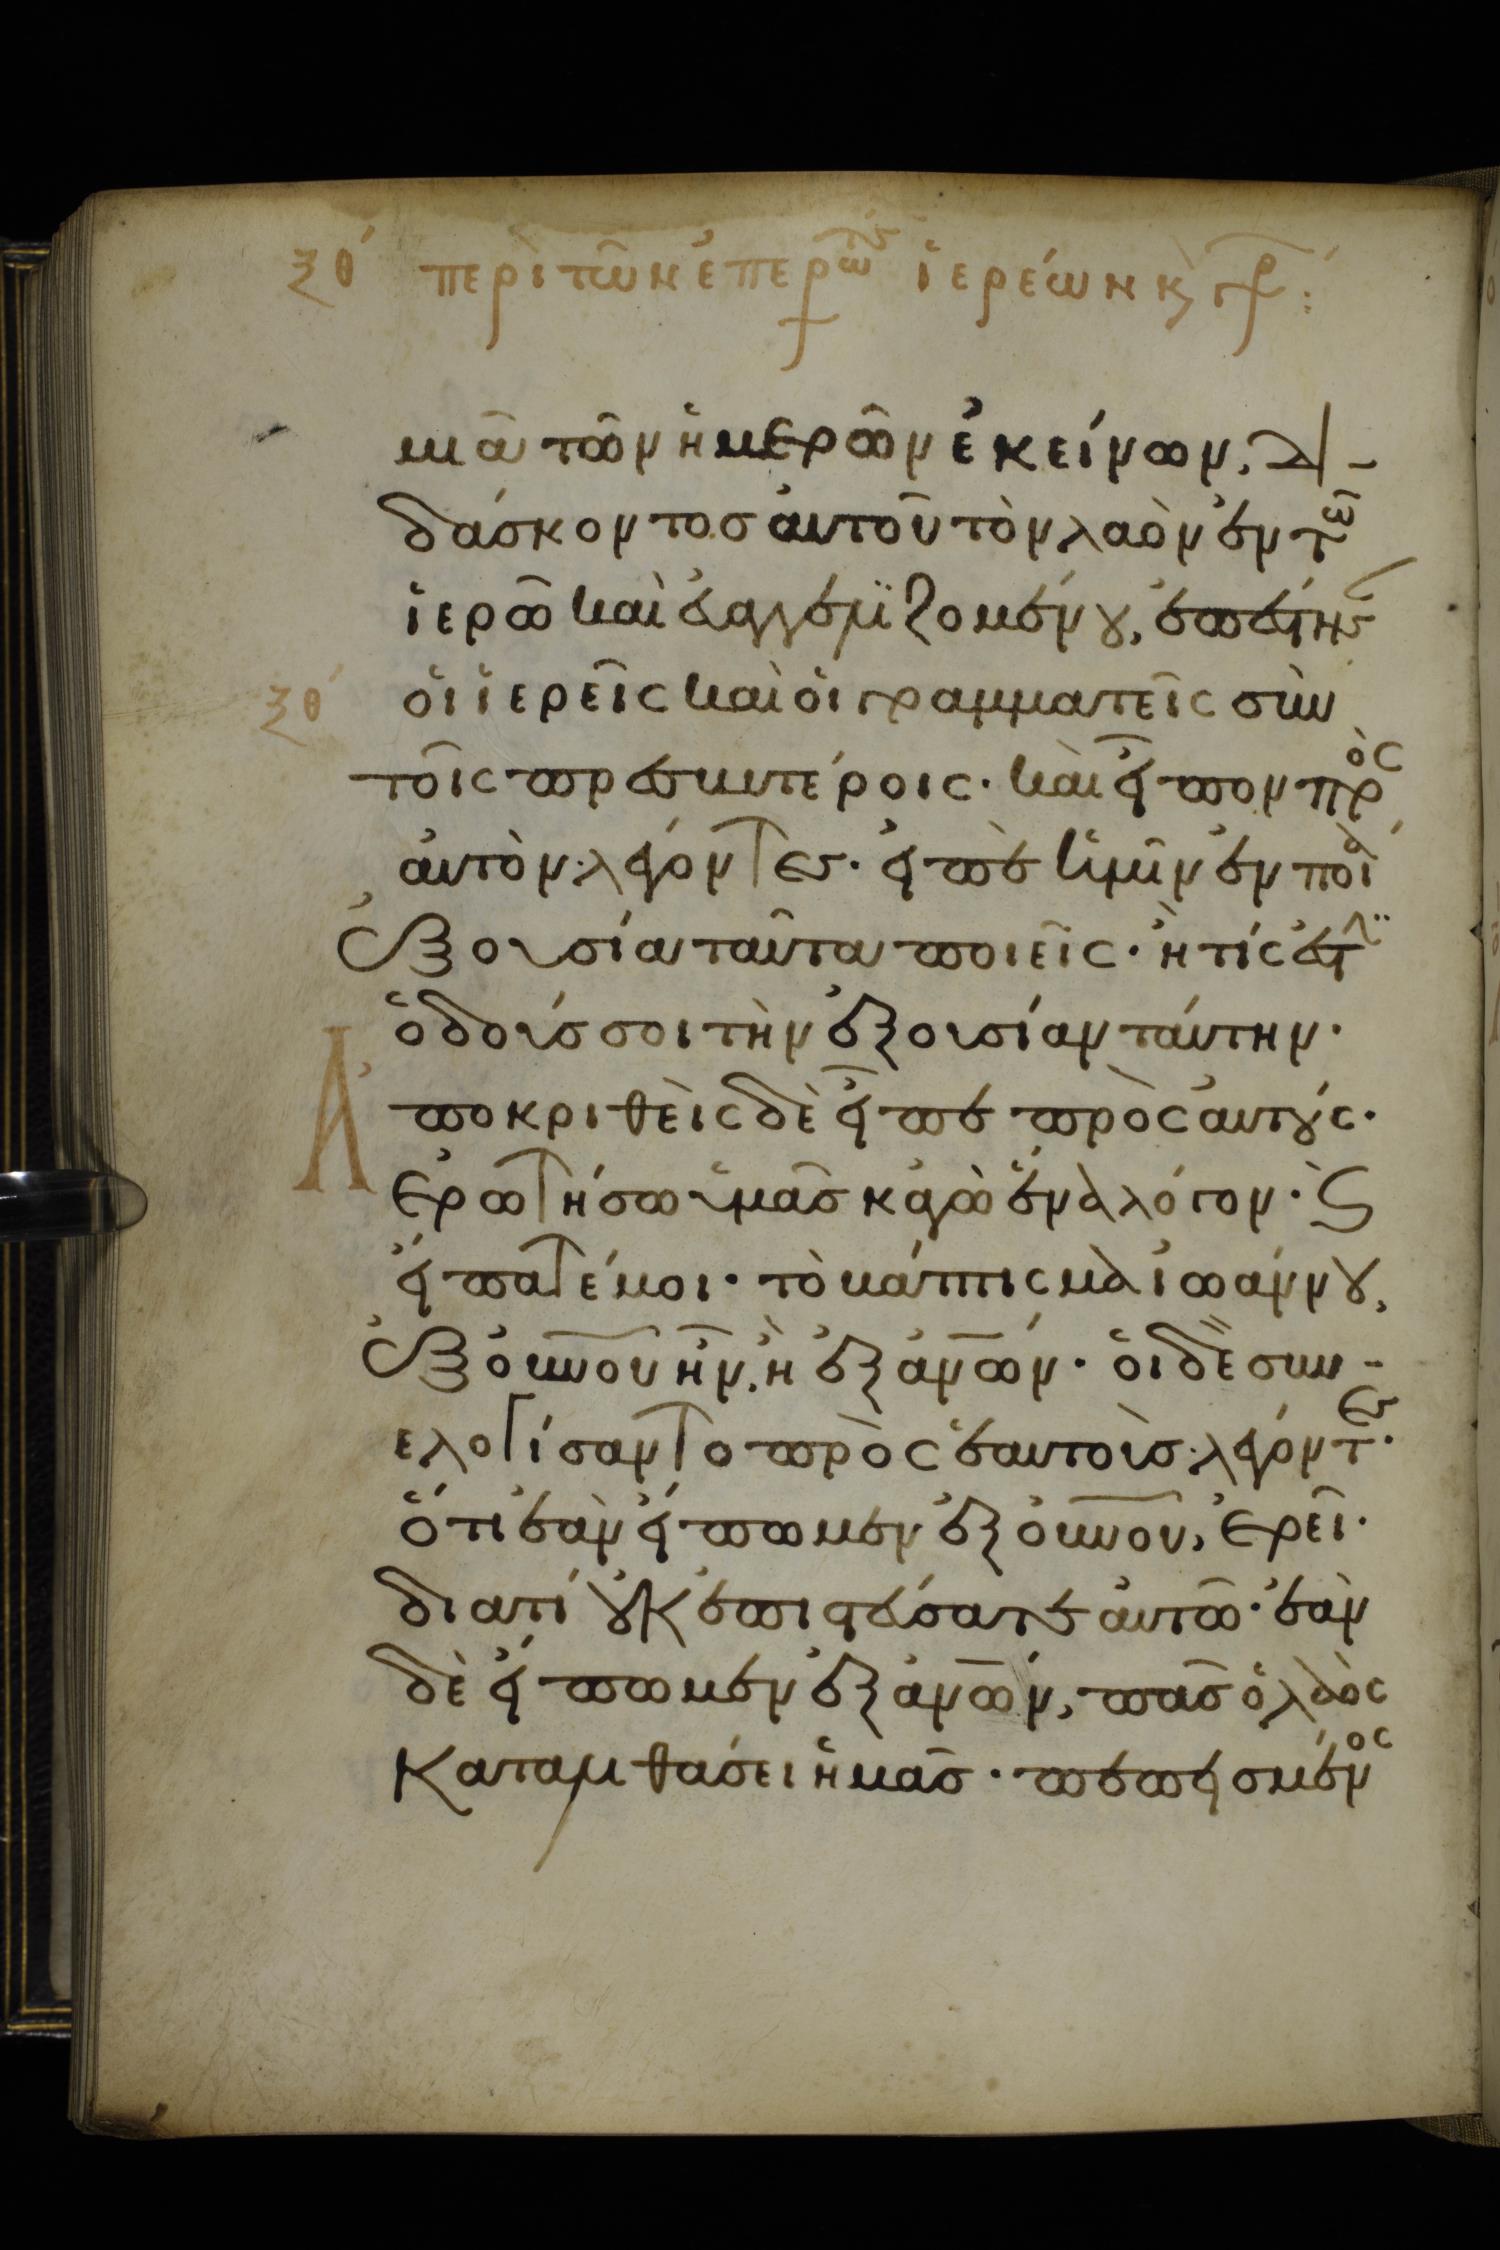 ξθ´ περὶ τῶν ἐπερω´τ ἱερέων κ̀ γρ:
μιᾶ τῶν ἡμερῶν ἐκείνων, δι-
δάσκοντος αὐτοῦ τὸν λαὸν ἐν τῶ
ἱερῶ καὶ εὐαγγελϊζομένου, ἐπέστης
ξθ´ οἱ ἱερεῖς καὶ οἱ γραμματεῖς σὺν
τοῖς πρεσβυτέροις· καὶ εἶπον πρὸς
αὐτὸν λέγοντες· εἰπὲ ἡμῖν ἐν ποία
ἐξουσία ταῦτα ποιεῖς· ἢ τίς ἐστϊν
ὁ δούς σοι τὴν ἐξουσίαν ταύτην·
Ἀποκριθεὶς δὲ εἶπε πρὸς αὐτούς·
ἐρωτήσω ὑμᾶς κἀγὼ ἕνα λόγον· καὶ
εἴπατέ μοι· τὸ βάπτισμα ἰωάννου,
ἐξ οὐνου ἦν, ἢ ἐξ ἀνων· οἱ δὲ συν-
ελογίσαντο πρὸς ἑαυτοὺς λέγοντες·
ὅτι ἐὰν εἴπωμεν ἐξ οὐνου, ἐρεῖ·
διατί οὐκ ἐπιστεύσατε αὐτῶ· ἐὰν
δὲ εἴπωμεν ἐξ ἀνων, πᾶς ὁ λαὸς
καταλιθάσει ἡμᾶς· πεπεισμένος